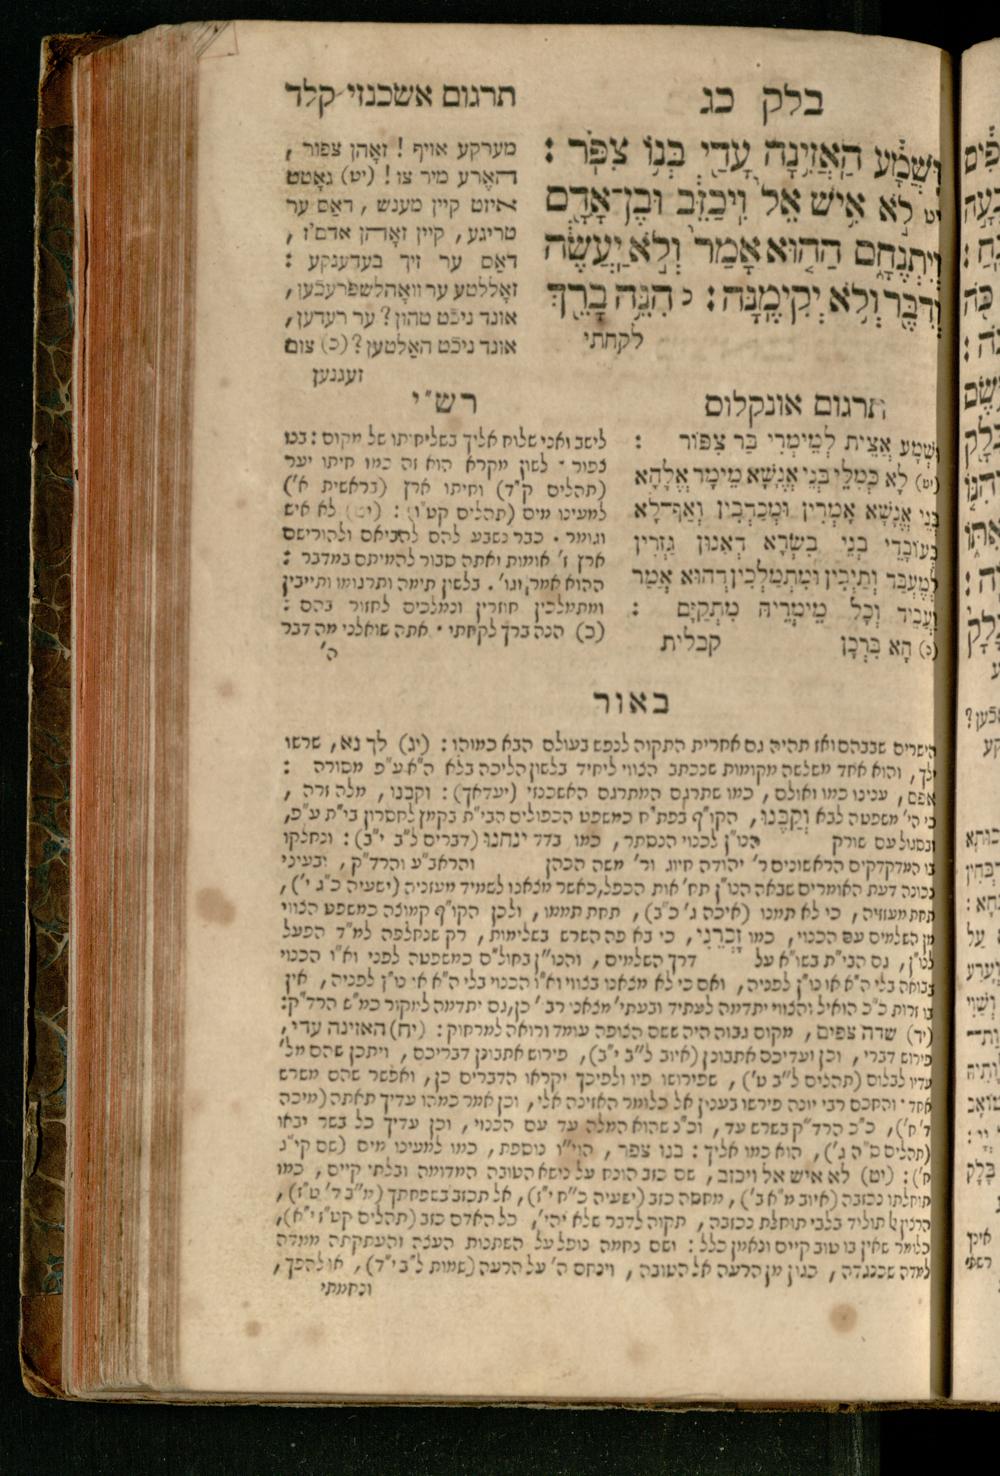 בלק כג
תרגום אשכנזי קלד
וּשֲׁמָ֔ע הַאֲזִ֥ינָה עָדַ֖י בְּנ֥וֹ צִפֹּֽר :
יט לֹ֣א אִ֥ישׁ אֵל֙ וִֽיכַזֵּ֔ב וּבֶן־אָדָ֖ם
וְיִתְנֶחָ֑ם הַה֤וּא אָמַר֙ וְלֹ֣א יַעֲשֶׂ֔ה
וְדִבֶּ֖ר וְלֹ֥א יְקִימֶֽנָּה : כ הִנֵּ֥ה בָרֵ֖ךְ
לקחתי
מערקע אויף ! זאָהן צפור ,
האָרע מיר צו ! (יט) גאָטט
איזט קיין מענש , דאַס ער
טריגע , קיין זאָהן אדם'ז ,
דאַס ער זיך בעדענקע :
זאָללטע ער וואָהלשפּרעכֿען ,
אונד ניכֿט טהון ? ער רעדען ,
אונד ניכֿט האַלטען ? (כ) צום
זעגנען
תרגום אונקלוס
וּשְׁמָע אֲצֵית לְמֵימְרִי בַּר צִפּוֹר :
(יט) לָא כְּמִלֵּי בְּנֵי אֱנָשָׁא מֵימַר אֱלָהָא
בְּנֵי אֱנָשָׁא אָמְרִין וּמְכַדְּבִין וְאַף־לָא
כְּעוֹבָדֵי בְּנֵי בִשְׂרָא דְּאִנּוּן גַּזְרִין
לְמֶעְבַּד וְתַיְבִין וּמִתְמַלְּכִין דְּהוּא אֲמַר
וְעָבִיד וְכָל מֵימְרֵיהּ מִתְקַיָּם :
(כ) הָא בִּרְכָן קבלית
רש״י
לישב ואני שלוח אליך בשליחותו של מקום : בנו
צפור · לשון מקרא הוא זה כמו חיתו יער
(תהלים ק״ד) וחיתו ארץ (בראשית א')
למעינו מים (תהלים קט״ו) : (יט) לא איש
וגומר · כבר נשבע להם להביאם ולהורישם
ארץ ז' אומות ואתה סבור להמיתם במדבר :
ההוא אמר וגו' . בלשון תימה ותרגומו ותייבין
ומתמלכין חוזרין ונמלכים לחזור בהם :
(כ) הנה ברך לקחתי · אתה שואלני מה דבר
ה'
באור
הישרים שבבהם ואז תהיה גם אחרית התקוה לנפש בעולם הבא כמוהו : (יג) לך נא , שרשו
ילך , והוא אחד משלשה מקומות שנכתב הצווי ליחיד בלשון הליכה בלא ה״א ע״פ מסורה :
אפס , ענינו כמו ואולם , כמו שתרגם המתרגם האשכנזי (יעדאך) : וקבנו , מלה זרה ,
כי הי' משפטה לבא וְקַבֶּנּוּ , הקו״ף בפת״ח כמשפט הכפולים הבי״ת בקמץ לחסרון בי״ת ע״פ ,
ובסגול עם שורק הנו״ן לכנוי הנסתר , כמו בדד ינחנו (דברים ל״ב י״ב) : ונחלקו
בו המדקדקים הראשונים ר' יהודה חיוג ור' משה הכהן והראב״ע והרד״ק , ובעיני
נכונה דעת האומרים שבאה הנו״ן תח' אות הכפל , כאשר מצאנו לשמיד מעזניה (ישעיה כ״ג י') ,
תחת מעוזיה , כי לא תמנו (איכה ג' כ״ב) , תחת תממו , ולכן הקו״ף קמוצה כמשפט הצווי
מן השלמים עם הכנוי , כמו זָכְרֵנִי , כי בא פה השרש בשלימות , רק שנחלפה למ״ד הפעל
לנו״ן , גם הבי״ת בשו״א על דרך השלמים , והנו״ן בחול״ם כמשפטה לפני וא״ו הכנוי
בבואה בלי ה״א או נו״ן לפניה , ואם כי לא מצאנו בצווי וא״ו הכנוי בלי ה״א או נו״ן לפניה , אין
בו זרות כ״כ הואיל והצווי יתדמה לעתיד ובעתי' מצאני רב' כן , גם יתדמה למקור כמ״ש הרד״ק :
(יד) שדה צפים , מקום גבוה היה ששם הצופה עומד ורואה למרחוק : (יח) האזינה עדי ,
פירוש דברי , וכן ועדיכם אתבונן (איוב ל״ב י״ב) , פירוש אתבונן דבריכם , ויתכן שהם מל'
עדיו לבלום (תהלים ל״ב ט') , שפירושו פיו ולפיכך יקראו הדברים כן , ואפשר שהם משרש
אחד · והחכם רבי יונה פירשו בענין אל כלומר האזינה אלי , וכן אמר כמהו עדיך תאתה (מיכה
ד' ח') , כ״כ הרד״ק בשרש עד , וכ״נ שהוא המלה עד עם הכנוי , וכן עדיך כל בשר יבאו
(תהלים ס״ה ג') , הוא כמו אליך : בנו צפר , הוי״ו נוספת , כמו למעינו מים (שם קי״ד
ח') : (יט) לא איש אל ויכזב , שם כזב הונח על נושא הטובה המדומה ובלתי קיים , כמו
תוחלתו נכזבה (איוב מ״א ב') , מחסה כזב (ישעיה כ״ח י״ז) , אל תכזב בשפחתך (מ״ב ד' ט״ז) ,
הרצון אל תוליד בלבי תוחלת נכזבה , תקוה לדבר שלא יהי' , כל האדם כזב (תהלים קט״ז י״א) ,
כלומר שאין בו טוב קיים ונאמן כלל : ושם נחמה נופל על השתנות העצה והעתקתה ממדה
למדה שכנגדה , כגון מן הרעה אל הטובה , וינחם ה' על הרעה (שמות ל״ב י״ד) , או להפך ,
ונחמתי